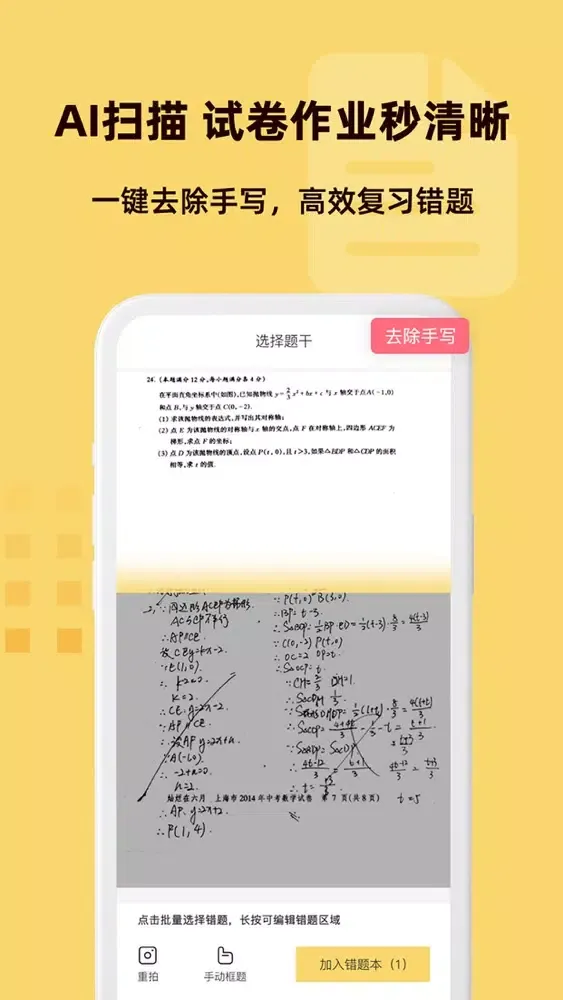 AI扫描 试卷作业秒清晰
一键去除手写，高效复习错题
选择题干
去除手写
24.（本题满分12分,每小题满分各4分）
在平面直角坐标系中(如图),已知抛物线 y=2/3x²+bx+c 与 x 轴交于点A(-1,0)
和点 B,与 y 轴交于点 C(0,-2).
(1) 求该抛物线的表达式,并写出其对称轴;
(2) 点 E 为该抛物线的对称轴与 x 轴的交点,点 F 在对称轴上,四边形 ACEF 为
梯形,求点 F 的坐标;
(3) 点 D 为该抛物线的顶点,设点 P(t, 0),且 t>3,如果△BDP 和△CDP 的面积
相等,求 t 的值.
AC与EP不平行
∴AP∥CE
设CE y=kx-2
∵E(1,0)
k=2
∴CE y=2x-2
∵AP∥CE
∴设AP y=2x+n
∵A(-1,0)
∴-2+n=0
n=2
∴AP y=2x+2
∴P(1,4)
∵P(t,0) B(3,0)
∴BP=t-3
∵C(0,-2) P(t,0)
∴OC=2 OP=t
t=5
灿烂在六月 上海市2014年中考数学试卷 第 7 页(共8页)
点击批量选择错题，长按可编辑错题区域
重拍
手动框题
加入错题本（1）